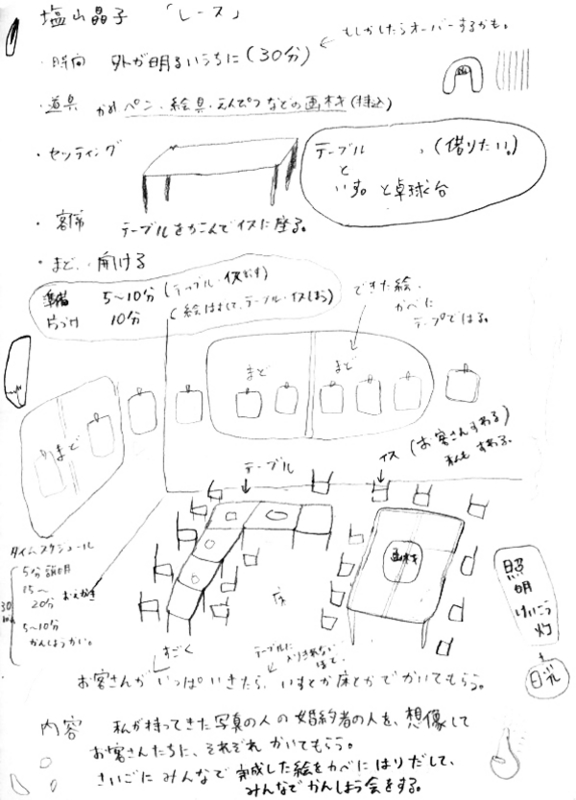 塩山晶子 「レース」
もしかしたらオーバーするかも。
・時間 外が明るいうちに(30分)
・道具 ペン・絵具・えんぴつなどの画材(持込)
・セッティング
テーブル 、(借りたい。)
と
いす。と卓球台
・客席 テーブルをかこんでイスに座る。
・まど 開ける
準備 5〜10分(テーブル・イスだす)
片づけ 10分 (絵はずして、テーブル・イスしまう)
できた絵、
かべに
テープではる。
まど まど
まど
イス(お客さんすわる)
私もすわる。
テーブル
画材
床
タイムスケジュール
5分説明
15〜
20分 おえかき
30
5〜10分
かんしょうかい。
照明
けいこう灯
+
日光
すごく
テーブルに
入りきれない
ほど、
お客さんがいっぱいきたら、いすとか床とかでかいてもらう。
内容 私が持ってきた写真の人の婚約者の人を、想像して
お客さんたちに、それぞれかいてもらう。
さいごにみんなで完成した絵をかべにはりだして、
みんなでかんしょう会をする。